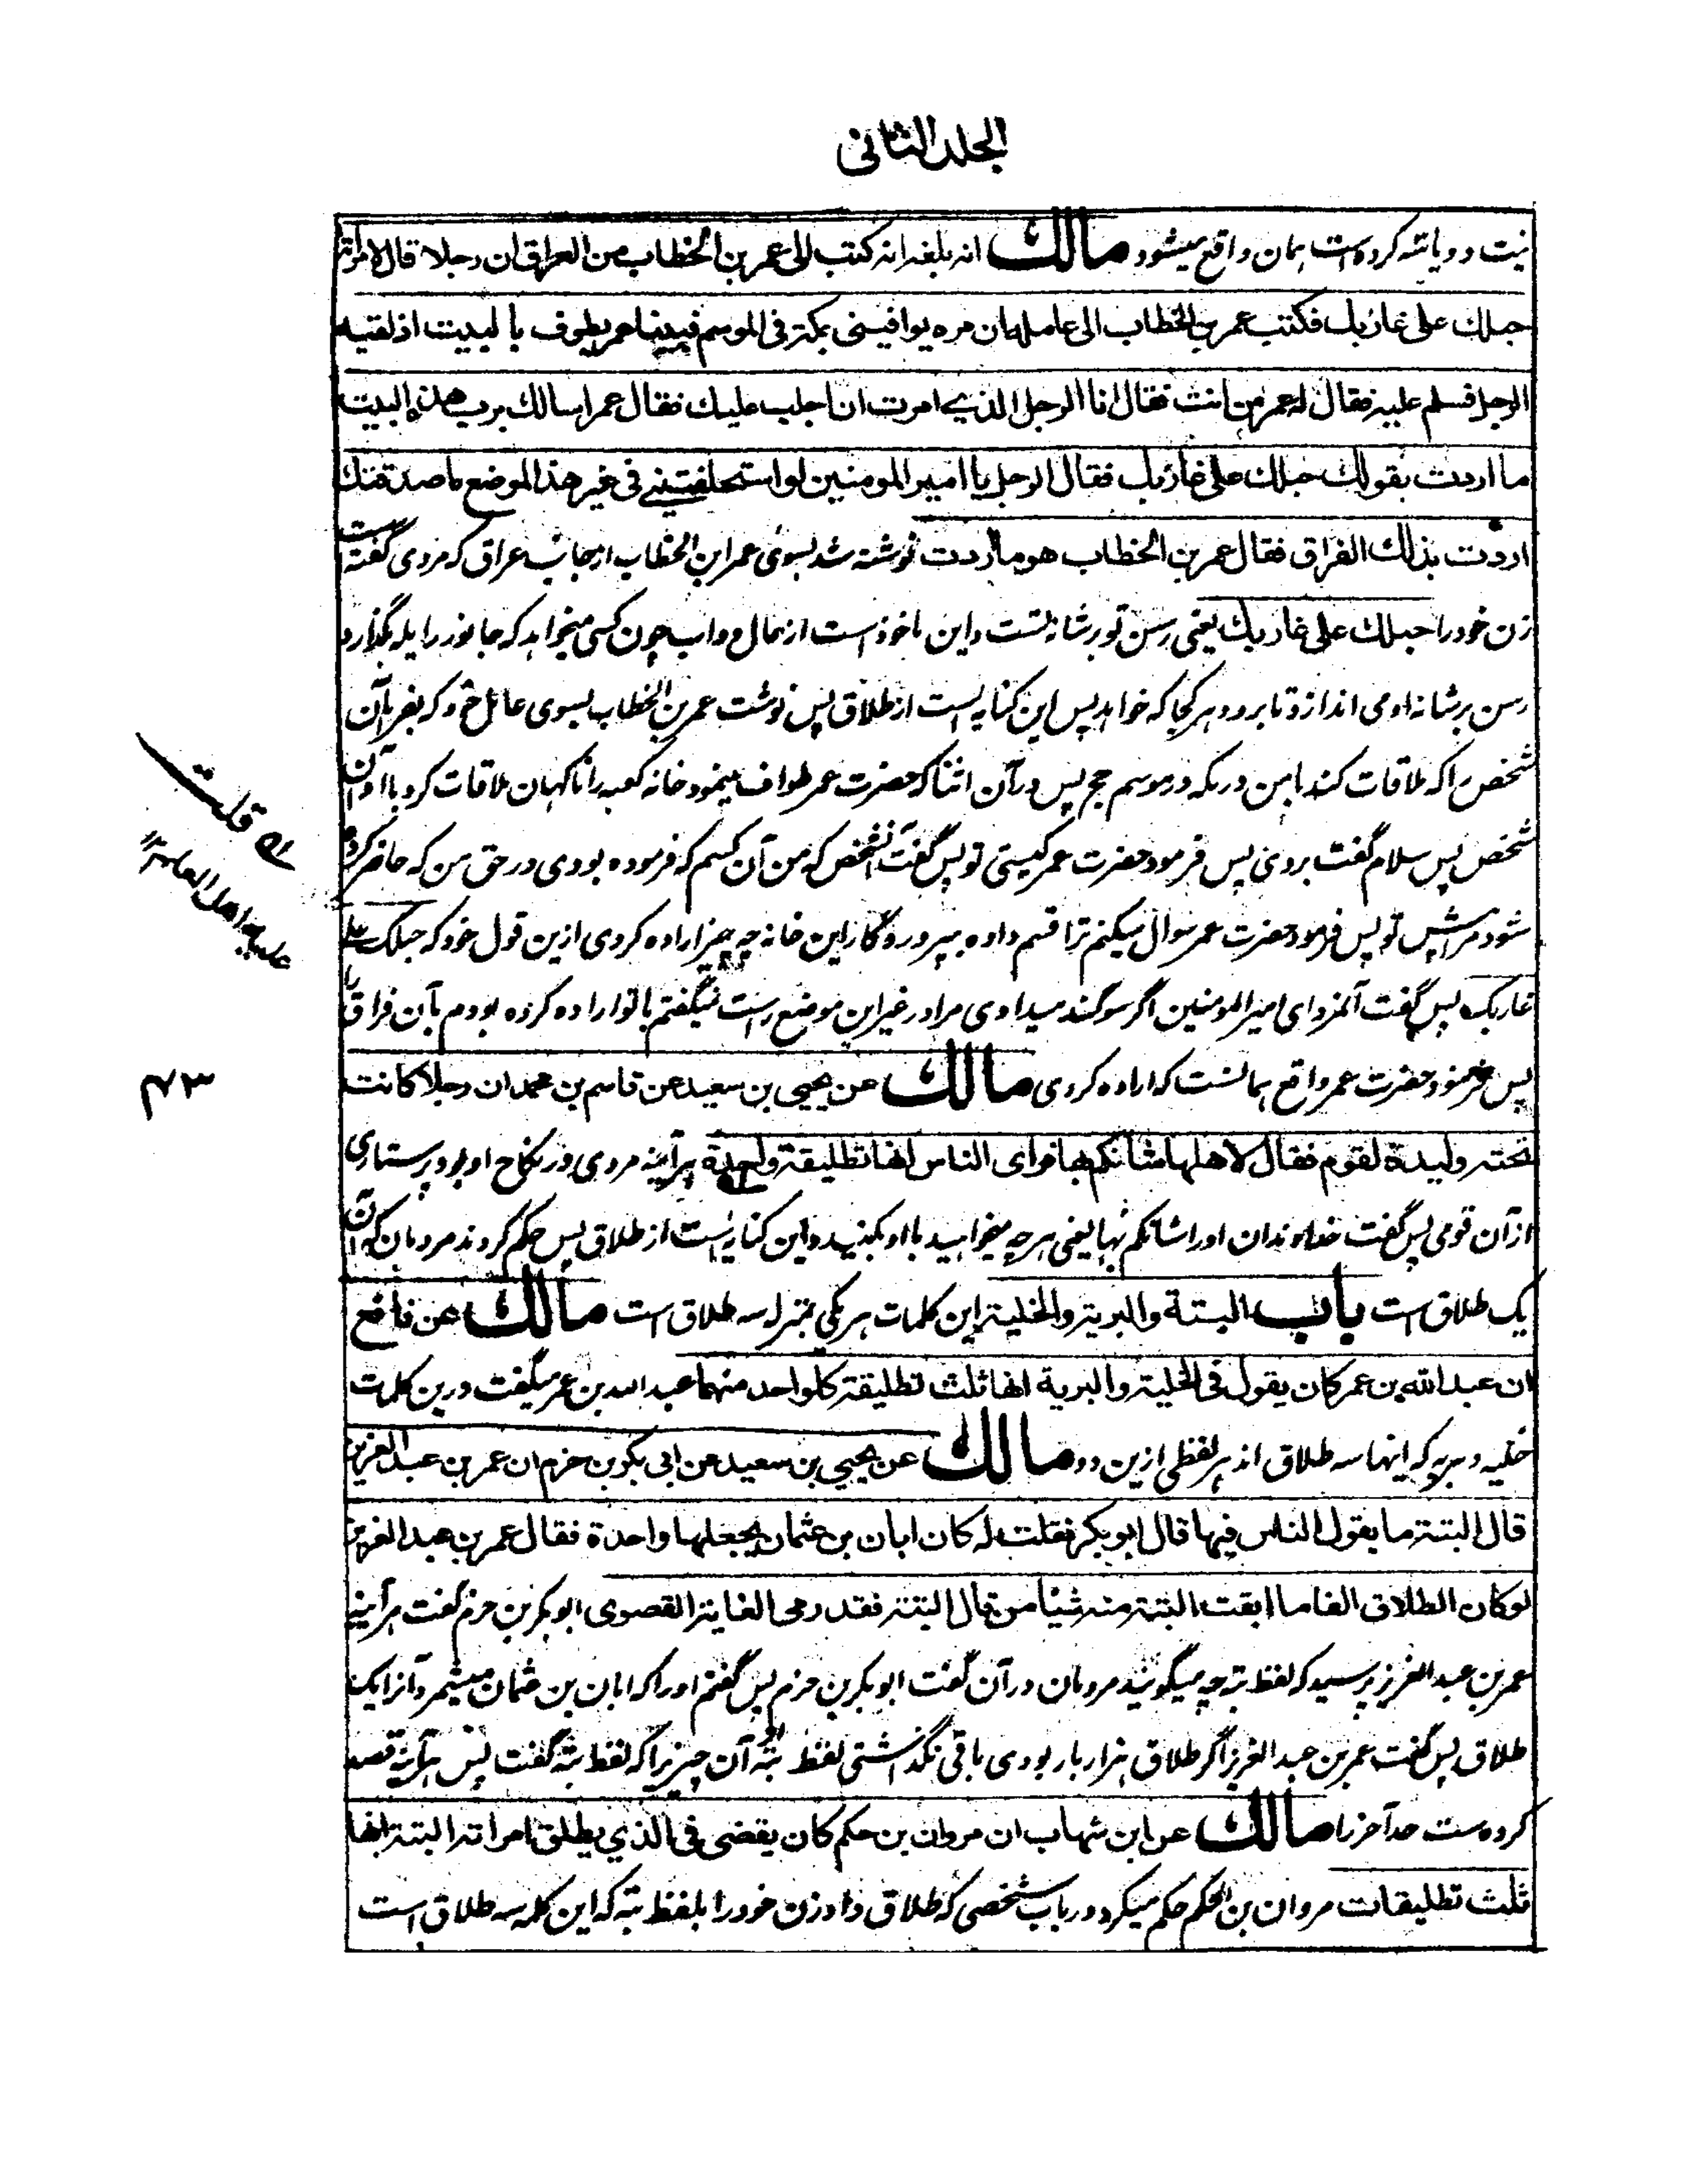 الجلد الثانی
نیت دو یا سه کرده است همان واقع میشود مالك انه بلغه انه كتب الى عمر بن الخطاب من العراق ان رجلا قال لامراته
حبلك على غاربك فكتب عمر بن الخطاب الى عامله ان مره يوافينى بمكة فى الموسم فبينما عمر يطوف بالبيت اذ لقيه
الرجل فسلم عليه فقال له عمر من انت فقال انا الرجل الذي امرت ان اجلب عليك فقال عمر اسالك برب هذه البيت
ما اردت بقولك حبلك على غاربك فقال الرجل يا امير المومنين لو استحلفتني فى غير هذا الموضع ما صدقتك
اردت بذلك الفراق فقال عمر بن الخطاب هو ما اردت نوشته شد بسوی عمر ابن الخطاب از جانب عراق که مردی گفته است
زن خود را حبلك على غاربك یعنی رسن تو بر شانه تست و این ماخوذ است از حال دواب چون کسی میخواهد که جانور را یله بگذارد
رسن بر شانه او می اندازد تا برود هر کجا که خواهد پس این کنایه است از طلاق پس نوشت عمر بن الخطاب بسوی عامل خود که بفرما آن
شخص را که ملاقات کند با من در مکه در موسم حج پس در آن اثنا که حضرت عمر طواف مینمود خانه کعبه را ناگهان ملاقات کرد با او آن
شخص پس سلام گفت بر وی پس فرمود حضرت عمر کیستی تو پس گفت آنشخص که من آن کسم که فرموده بودی در حق من که حاضر کرده
شود مرا پیش تو پس فرمود حضرت عمر سوال میکنم ترا قسم داده بپروردگار این خانه چه چیز اراده کردی ازین قول خود که حبلک علی
غاربک پس گفت آنمرد ای امیر المومنین اگر سوگند میدادی مرا در غیر این موضع راست نمیگفتم با تو اراده کرده بودم بآن فراق را
پس فرمود حضرت عمر واقع همانست که اراده کردی مالك عن يحيى بن سعيد عن قاسم بن محمد ان رجلا كانت
تحته وليدة لقوم فقال لاهلها شانكم بها فراى الناس انها تطليقة واحدة هر آینه مردی در نکاح او بود پرستاری
از آن قومی پس گفت خداوندان او را شانکم بها یعنی هر چه میخواهید با او بکنید و این کنایه است از طلاق پس حکم کردند مردمان که آن
یک طلاق است باب البتة والبرية والخلية این کلمات هر یکی بمنزله سه طلاق است مالك عن نافع
ان عبد الله بن عمر كان يقول فى الخلية والبرية انها ثلث تطليقة كل واحد منهما عبد الله بن عمر میگفت درین کلمات
خلیه و بریه که اینها سه طلاق اند هر لفظی ازین دو مالك عن يحيي بن سعيد عن ابى بكر بن حزم ان عمر بن عبد العزيز
قال البتة ما يقول الناس فيها قال ابو بكر فقلت له كان ابان بن عثمان يجعلها واحدة فقال عمر بن عبد العزيز
لو كان الطلاق الفا ما ابقت البتة منه شيئا من قال البتة فقد رمى الغاية القصوى ابو بکر بن حزم گفت هر آینه
عمر بن عبد العزیز پرسید که لفظ بته چه میگویند مردمان در آن گفت ابو بکر بن حزم پس گفتم او را که ابان بن عثمان میشمرد آنرا یک
طلاق پس گفت عمر بن عبد العزیز اگر طلاق هزار بار بودی باقی نگذاشتی لفظ بته از آن چیزی را که لفظ بته گفت پس هر آینه قصد
کرده ست حد آخر را مالك عن ابن شهاب ان مروان بن حكم كان يقضى فى الذي يطلق امراته البتة انها
ثلث تطليقات مروان بن الحکم حکم میکرد در باب شخصی که طلاق داد زن خود را بلفظ بته که این کلمه سه طلاق است
قلت
عليه اهل العلم